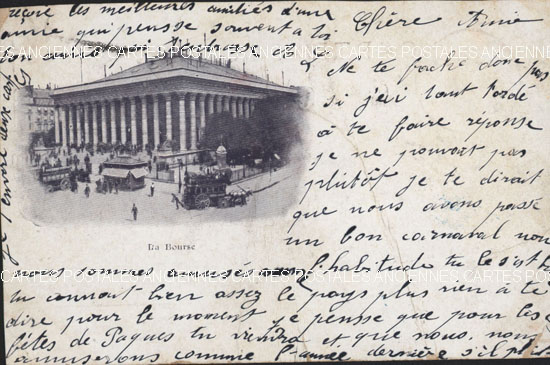 Chère Amie
Ne te fache donc pas
si j'ai tant tardé
à te faire réponse
je ne pouvant pas
plutôt je te dirait
que nous avons passé
un bon carnaval nou
nous sommes
l'habitude tu le sais
tu connait bien assez le pays plus rien à te
dire pour le moment je pense que pour les
fêtes de Paques tu viendra et que nous, nous
amuserons comme l'année dernière s'il plait
reçoit les meilleures amitiés d'une
amie qui pense souvent a toi
La Bourse
CARTES POSTALES ANCIENNES CARTES POSTALES ANCIENNES
CARTES POSTALES ANCIENNES CARTES POSTALES ANCIENNES